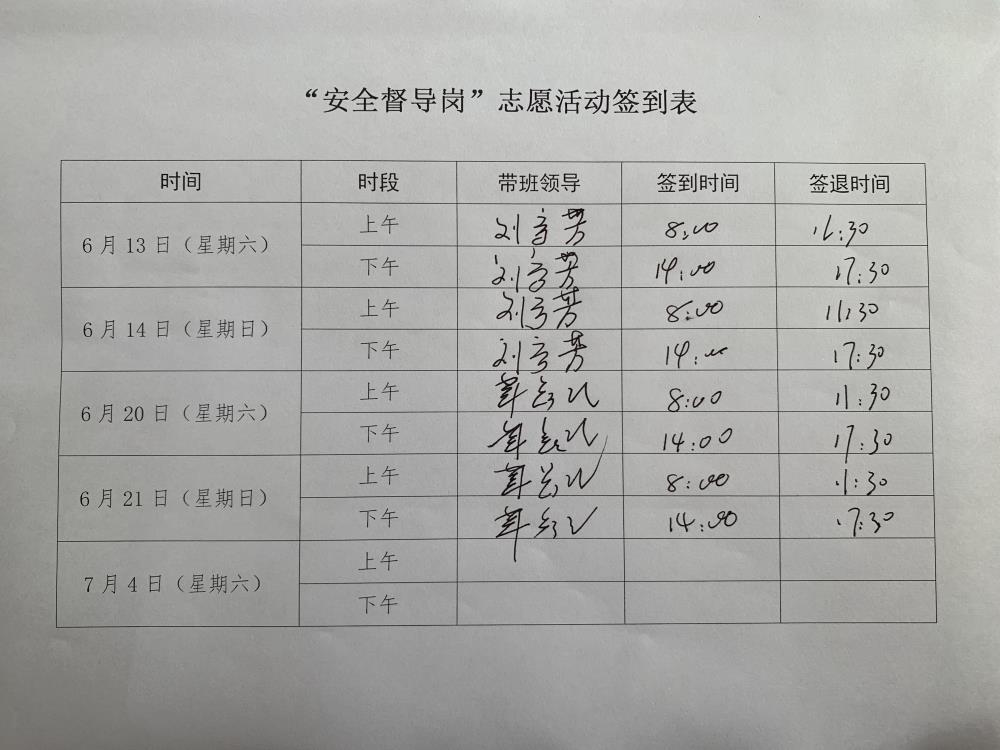 “安全督导岗”志愿活动签到表
时间 时段 带班领导 签到时间 签退时间
6 月 13 日（星期六） 上午 刘 芳 8:00 11:30
下午 刘 芳 14:00 17:30
6 月 14 日（星期日） 上午 刘 芳 8:00 11:30
下午 刘 芳 14:00 17:30
6 月 20 日（星期六） 上午 8:00 11:30
下午 14:00 17:30
6 月 21 日（星期日） 上午 8:00 11:30
下午 14:00 17:30
7 月 4 日（星期六） 上午
下午